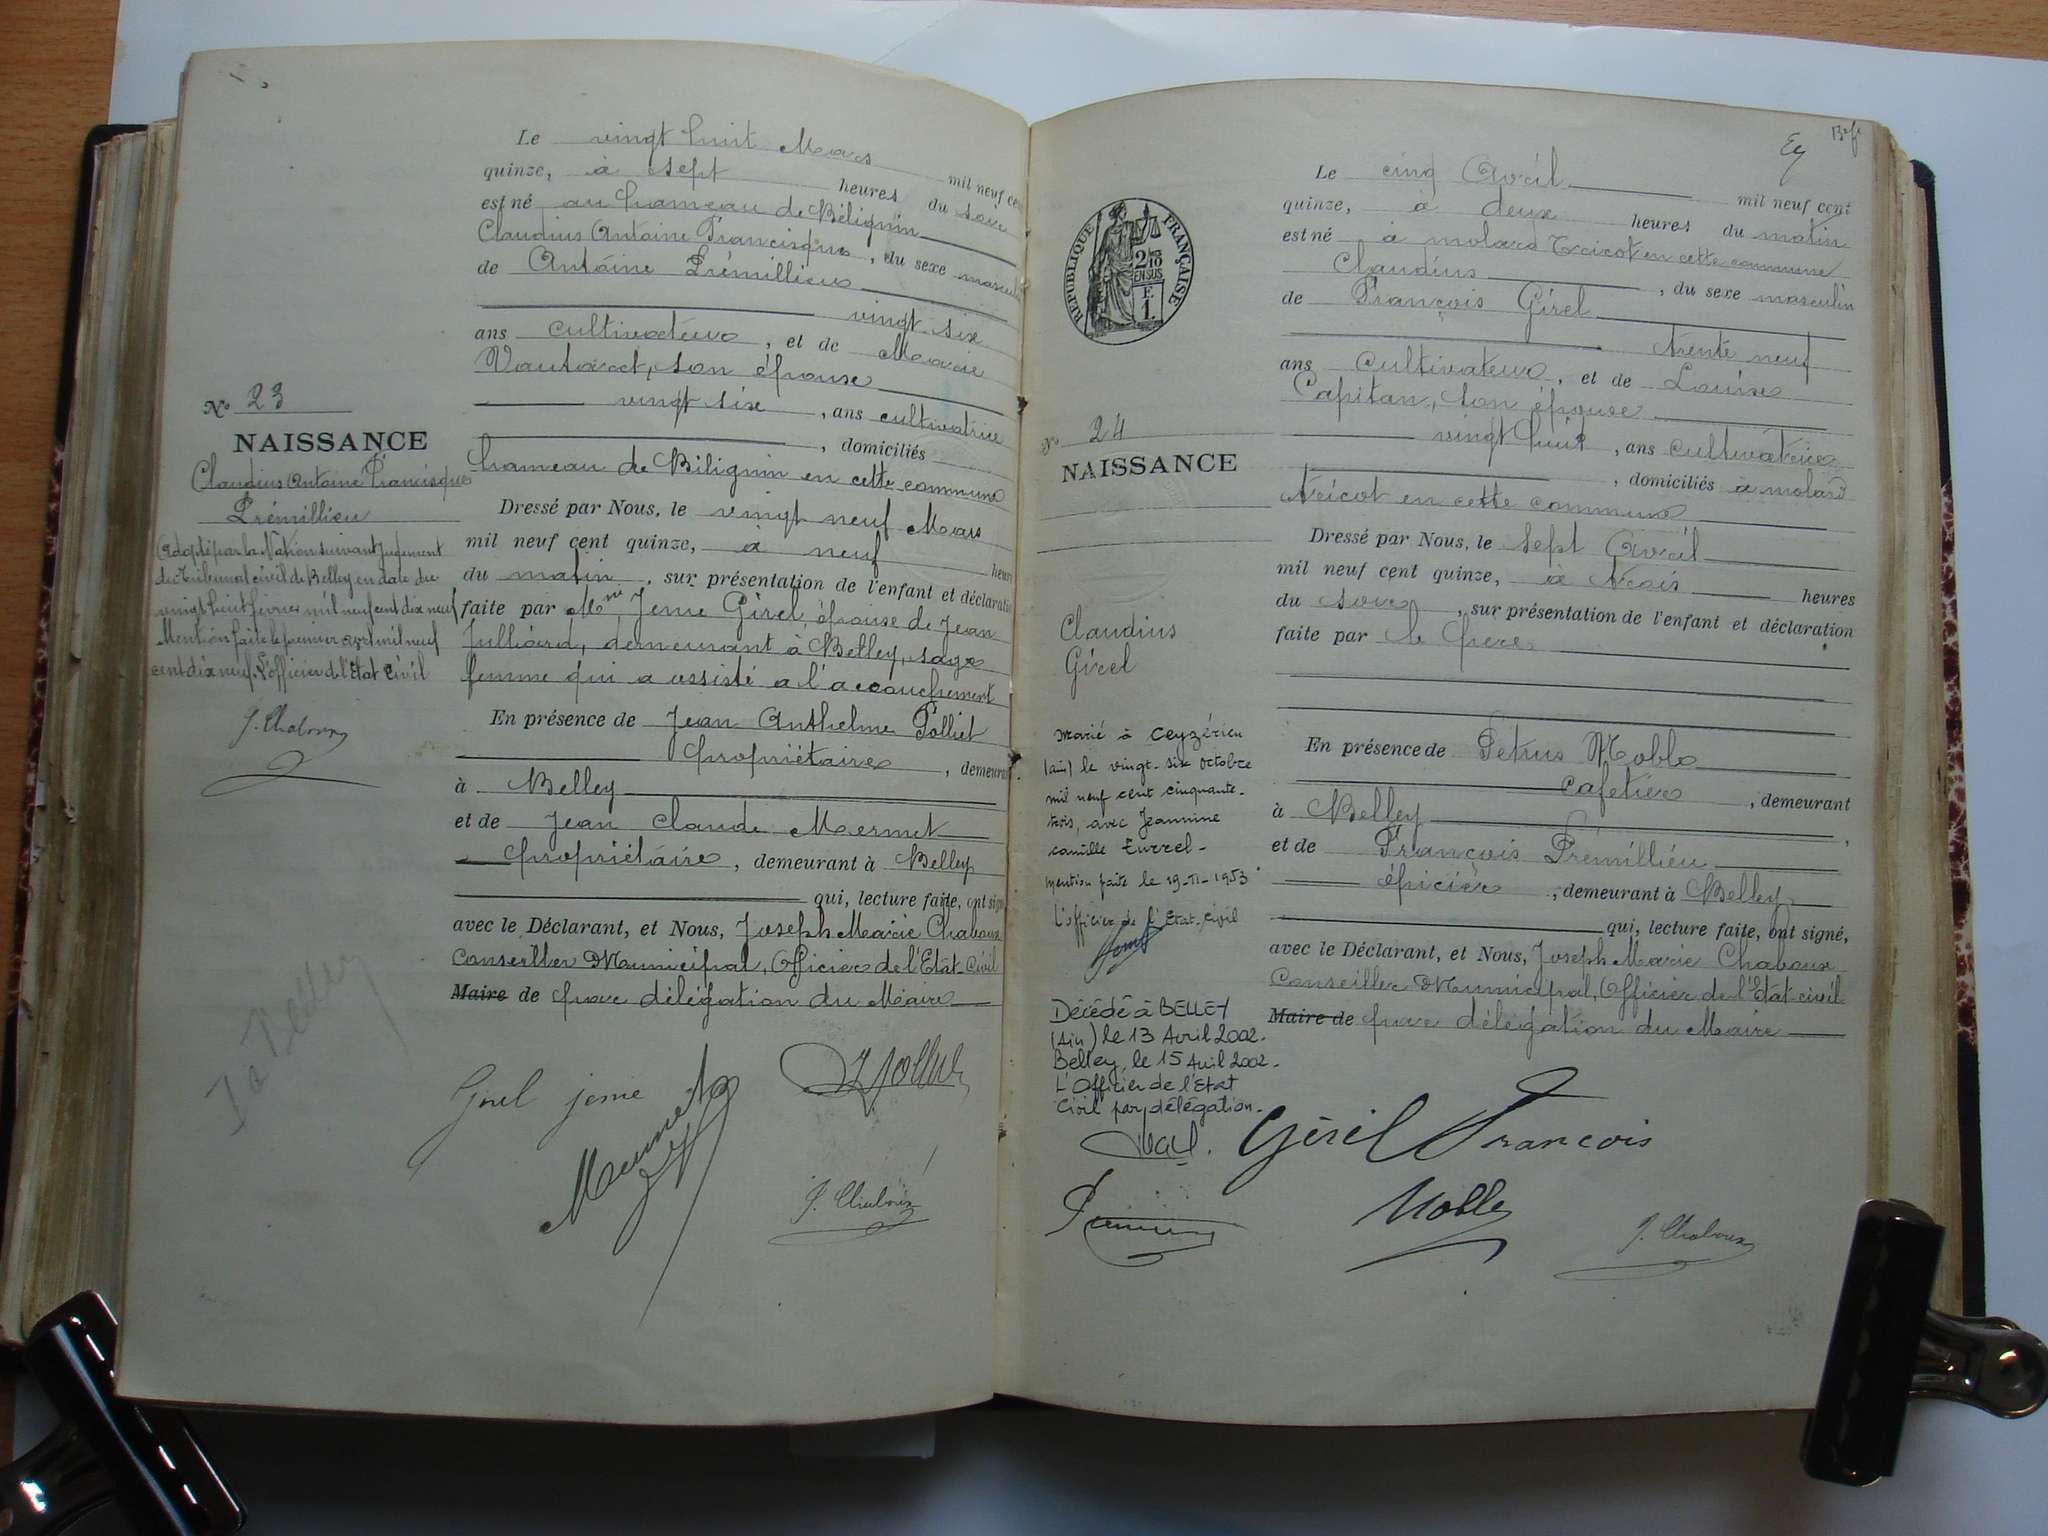 Le vingt huit Mars mil neuf cent
quinze, à sept heures du soir
est né au hameau de Bélignin
Claudius Antoine Francisque, du sexe masculin
de Antoine Prémillieu
vingt six
ans cultivateur, et de Marie
Vautaret, son épouse
vingt six, ans cultivatrice
, domiciliés
hameau de Bilignin en cette commune
Dressé par Nous, le vingt neuf Mars
mil neuf cent quinze, à neuf heures
du matin, sur présentation de l'enfant et déclaration
faite par Mme Jenne Girel, épouse de Jean
Julliard, demeurant à Belley, sage
femme qui a assisté a l'accouchement
En présence de Jean Anthelme Polliet
propriétaire, demeurant
à Belley
et de Jean Claude Mermet
propriétaire, demeurant à Belley
qui, lecture faite, ont signé
avec le Déclarant, et Nous, Joseph Marie Chaboux
Conseiller Municipal, Officier de l'Etat-Civil
Maire de par délégation du Maire
Girel jenne
Mermet
J. Chaboux
No 23
NAISSANCE
Claudius Antoine Francisque
Prémillieu
Adopté par la Nation suivant jugement
du Tribunal civil de Belley en date du
vingt huit février mil neuf cent dix neuf
Mention faite le premier avril mil neuf
cent dix neuf. L'officier de l'Etat Civil
J. Chaboux
Belley
Le cinq Avril mil neuf cent
quinze, à deux heures du matin
est né à molard Tricot en cette commune
Claudius, du sexe masculin
de François Girel
trente neuf
ans cultivateur, et de Louise
Capitan, son épouse
vingt huit, ans cultivatrice
, domiciliés à molard
Tricot en cette commune
Dressé par Nous, le sept Avril
mil neuf cent quinze, à trois heures
du soir, sur présentation de l'enfant et déclaration
faite par le père
En présence de Petrus Noble
cafetier, demeurant
à Belley
et de François Prémillieu
épicier, demeurant à Belley
qui, lecture faite, ont signé,
avec le Déclarant, et Nous, Joseph Marie Chaboux
Conseiller Municipal, Officier de l'Etat civil
Maire de par délégation du Maire
Girel François
Noble
J. Chaboux
RÉPUBLIQUE FRANÇAISE
2/10
EN SUS
F.
1.
No 24
NAISSANCE
Claudius
Girel
Marié à Ceyzérieu
(ain) le vingt-six octobre
mil neuf cent cinquante-
trois, avec Jeannine
camille
mention faite le 19-11-1953
L'officier de l'Etat-Civil
Décédé à BELLEY
(Ain) le 13 Avril 2002.
Belley, le 15 Avril 2002.
L'Officier de l'Etat
Civil par délégation.